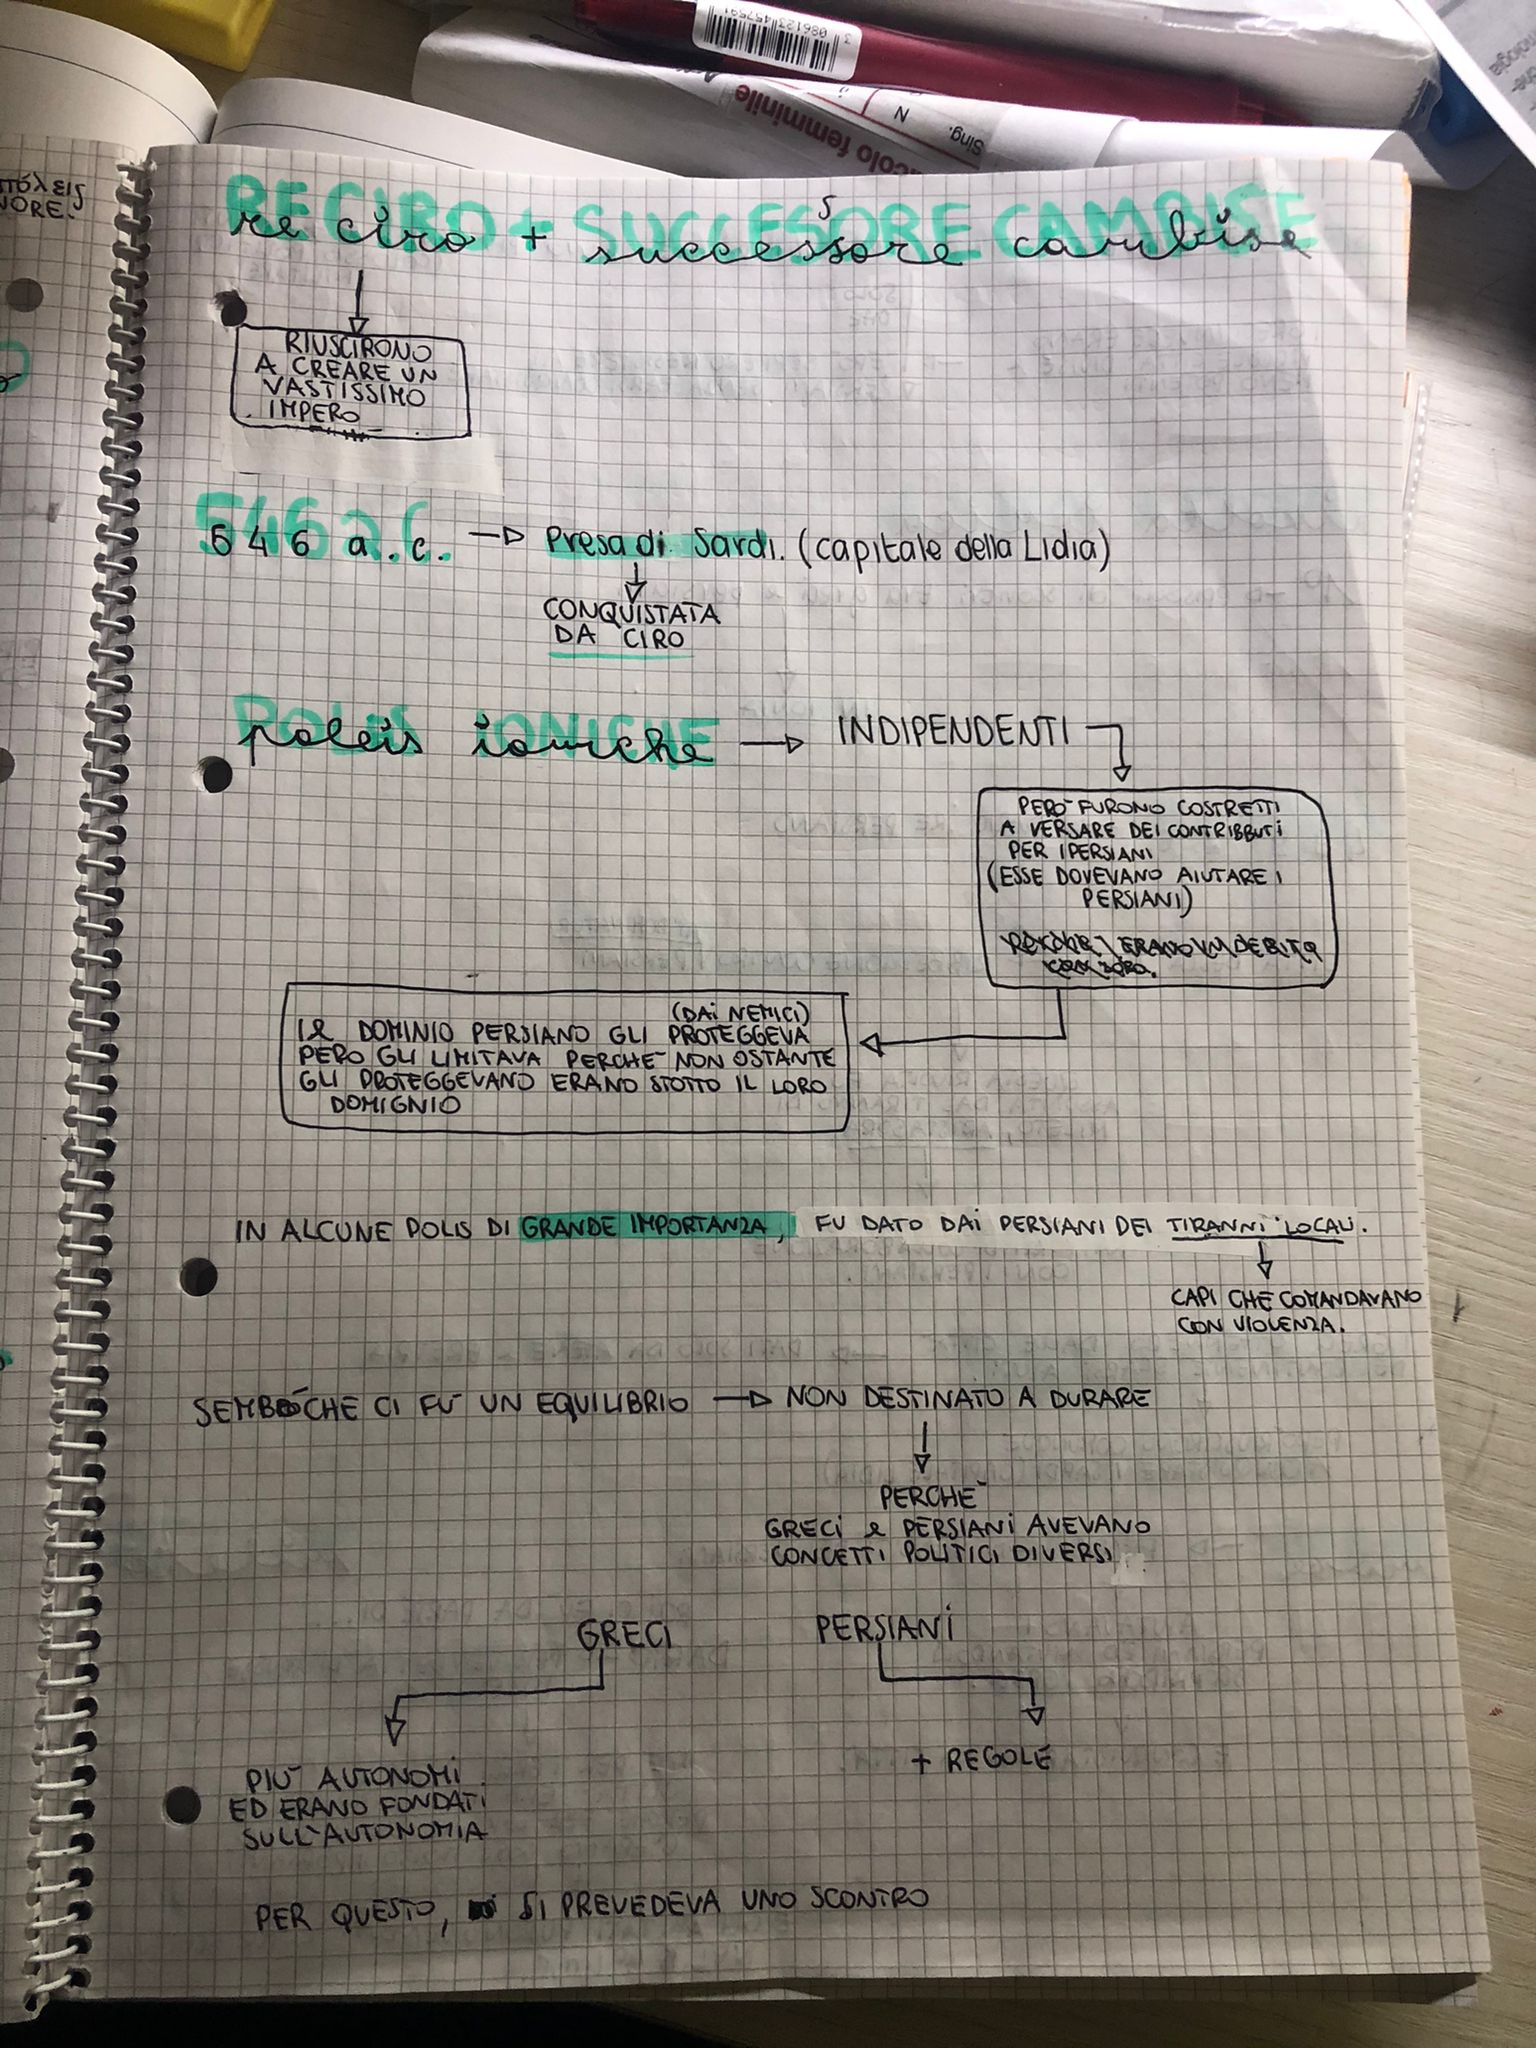 3 086123 457591
Sing.
N
icolo femminile
nologia
πόλεις
NORE.
RE CIRO + SUCCESSORE CAMBISE
re ciro + successore cambise
RIUSCIRONO
A CREARE UN
VASTISSIMO
IMPERO
546 a.C.
546 a.c. → Presa di Sardi. (capitale della Lidia)
CONQUISTATA
DA CIRO
POLEIS IONICHE
poleis ioniche → INDIPENDENTI
PERÒ FURONO COSTRETTI
A VERSARE DEI CONTRIBBUTI
PER I PERSIANI
(ESSE DOVEVANO AIUTARE I
PERSIANI)
(DAI NEMICI)
IL DOMINIO PERSIANO GLI PROTEGGEVA
PERO GLI LIMITAVA PERCHÈ NON OSTANTE
GLI PROTEGGEVANO ERANO STOTTO IL LORO
DOMIGNIO
IN ALCUNE POLIS DI GRANDE IMPORTANZA, FU DATO DAI PERSIANI DEI TIRANNI LOCALI.
CAPI CHE COMANDAVANO
CON VIOLENZA.
SEMBÒ CHE CI FÙ UN EQUILIBRIO → NON DESTINATO A DURARE
PERCHÈ
GRECI e PERSIANI AVEVANO
CONCETTI POLITICI DIVERSI
GRECI PERSIANI
+ REGOLE
PIÙ AUTONOMI
ED ERANO FONDATI
SULL'AUTONOMIA
PER QUESTO, SI PREVEDEVA UNO SCONTRO